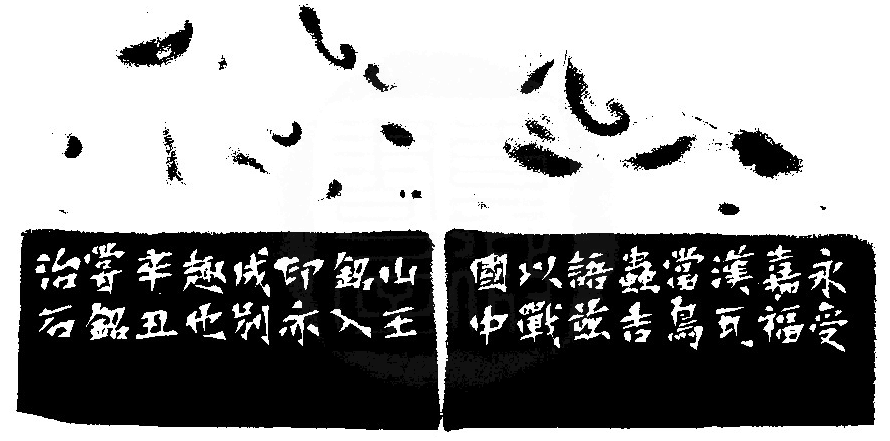 永受
嘉福
漢瓦
當鳥
蟲吉
語茲
以戰
國中
山王
銘入
印亦
成別
趣也
辛丑
嘗銘
治石